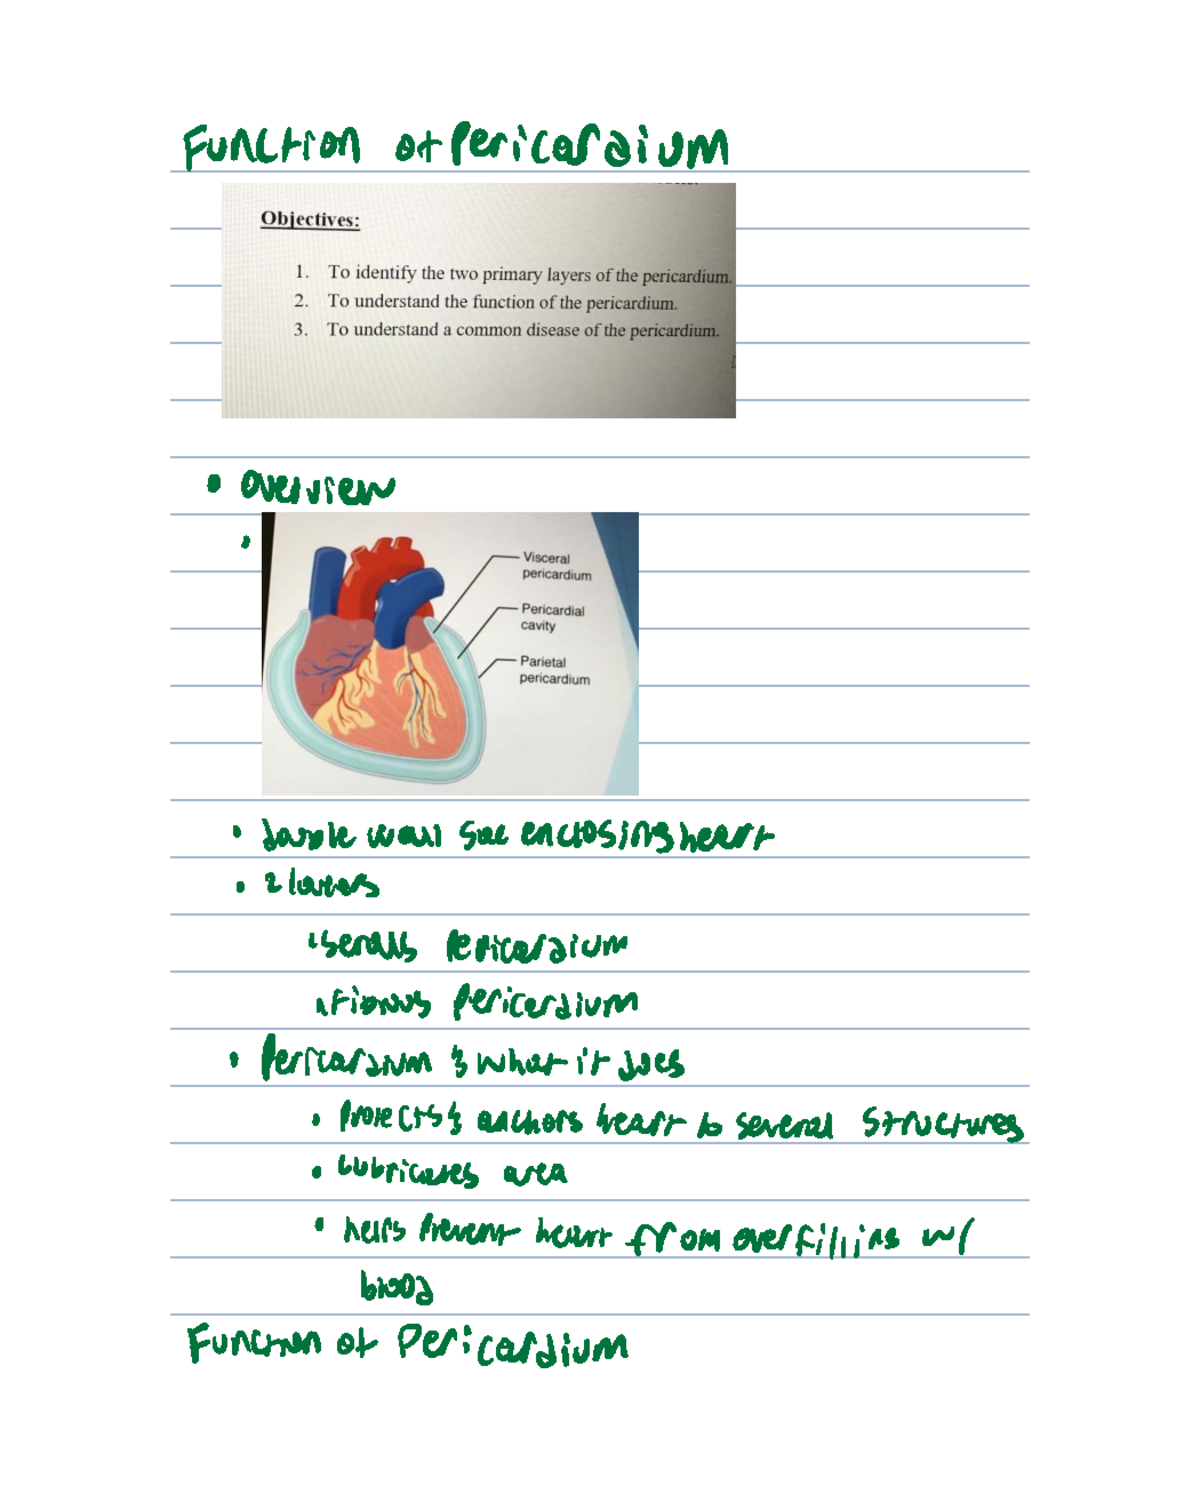 Function of Pericardium
Objectives:
1. To identify the two primary layers of the pericardium.
2. To understand the function of the pericardium.
3. To understand a common disease of the pericardium.
• overview
Visceral
pericardium
Pericardial
cavity
Parietal
pericardium
• double wall sac enclosing heart
• 2 layers
• Serous Pericardium
• Fibrous pericardium
• Pericardium & what it does
• Protects & anchors heart to several structures
• Lubricates area
• helps prevent heart from overfilling w/
blood
Function of Pericardium